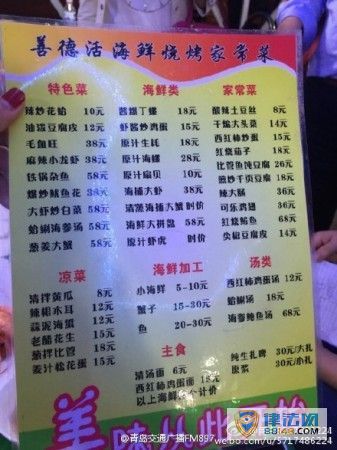 善德活海鲜烧烤家常菜
特色菜
辣炒花蛤 10元
油泼豆腐皮 12元
毛血旺 38元
麻辣小龙虾 38元
铁锅杂鱼 58元
爆炒鱿鱼花 38元
大虾炒白菜 58元
蛤蜊海参汤 58元
葱姜大蟹 58元
海鲜类
酱爆丁螺 18元
虾酱炒鸡蛋 15元
原汁生蚝 18元
原汁海螺 28元
原汁扇贝 18元
海捕大虾 38元
清蒸海捕大蟹 时价
海鲜大拼盘 58元
原汁虾虎 时价
家常菜
酸辣土豆丝 8元
干煸大头菜 14元
西红柿炒蛋 18元
红烧茄子 18元
比管鱼炖豆腐 26元
脂炒千页豆腐 18元
辣大肠 36元
可乐鸡翅 36元
红烧鲅鱼 68元
尖椒豆腐皮 14元
凉菜
清拌黄瓜 8元
辣根木耳 12元
蒜泥海蜇 12元
老醋花生 12元
葱拌比管 18元
姜汁松花蛋 12元
海鲜加工
小海鲜 5-10元
蟹子 15-30元
鱼 20-30元
主食
清汤面 6元
西红柿鸡蛋面 18元
汤类
西红柿鸡蛋汤 12元
蛤蜊汤 18元
海参鲍鱼汤 68元
纯生扎啤 30元/大扎
原浆 30元/小扎
律法网
@青岛交通广播FM897
weibo.com/u/5717486224